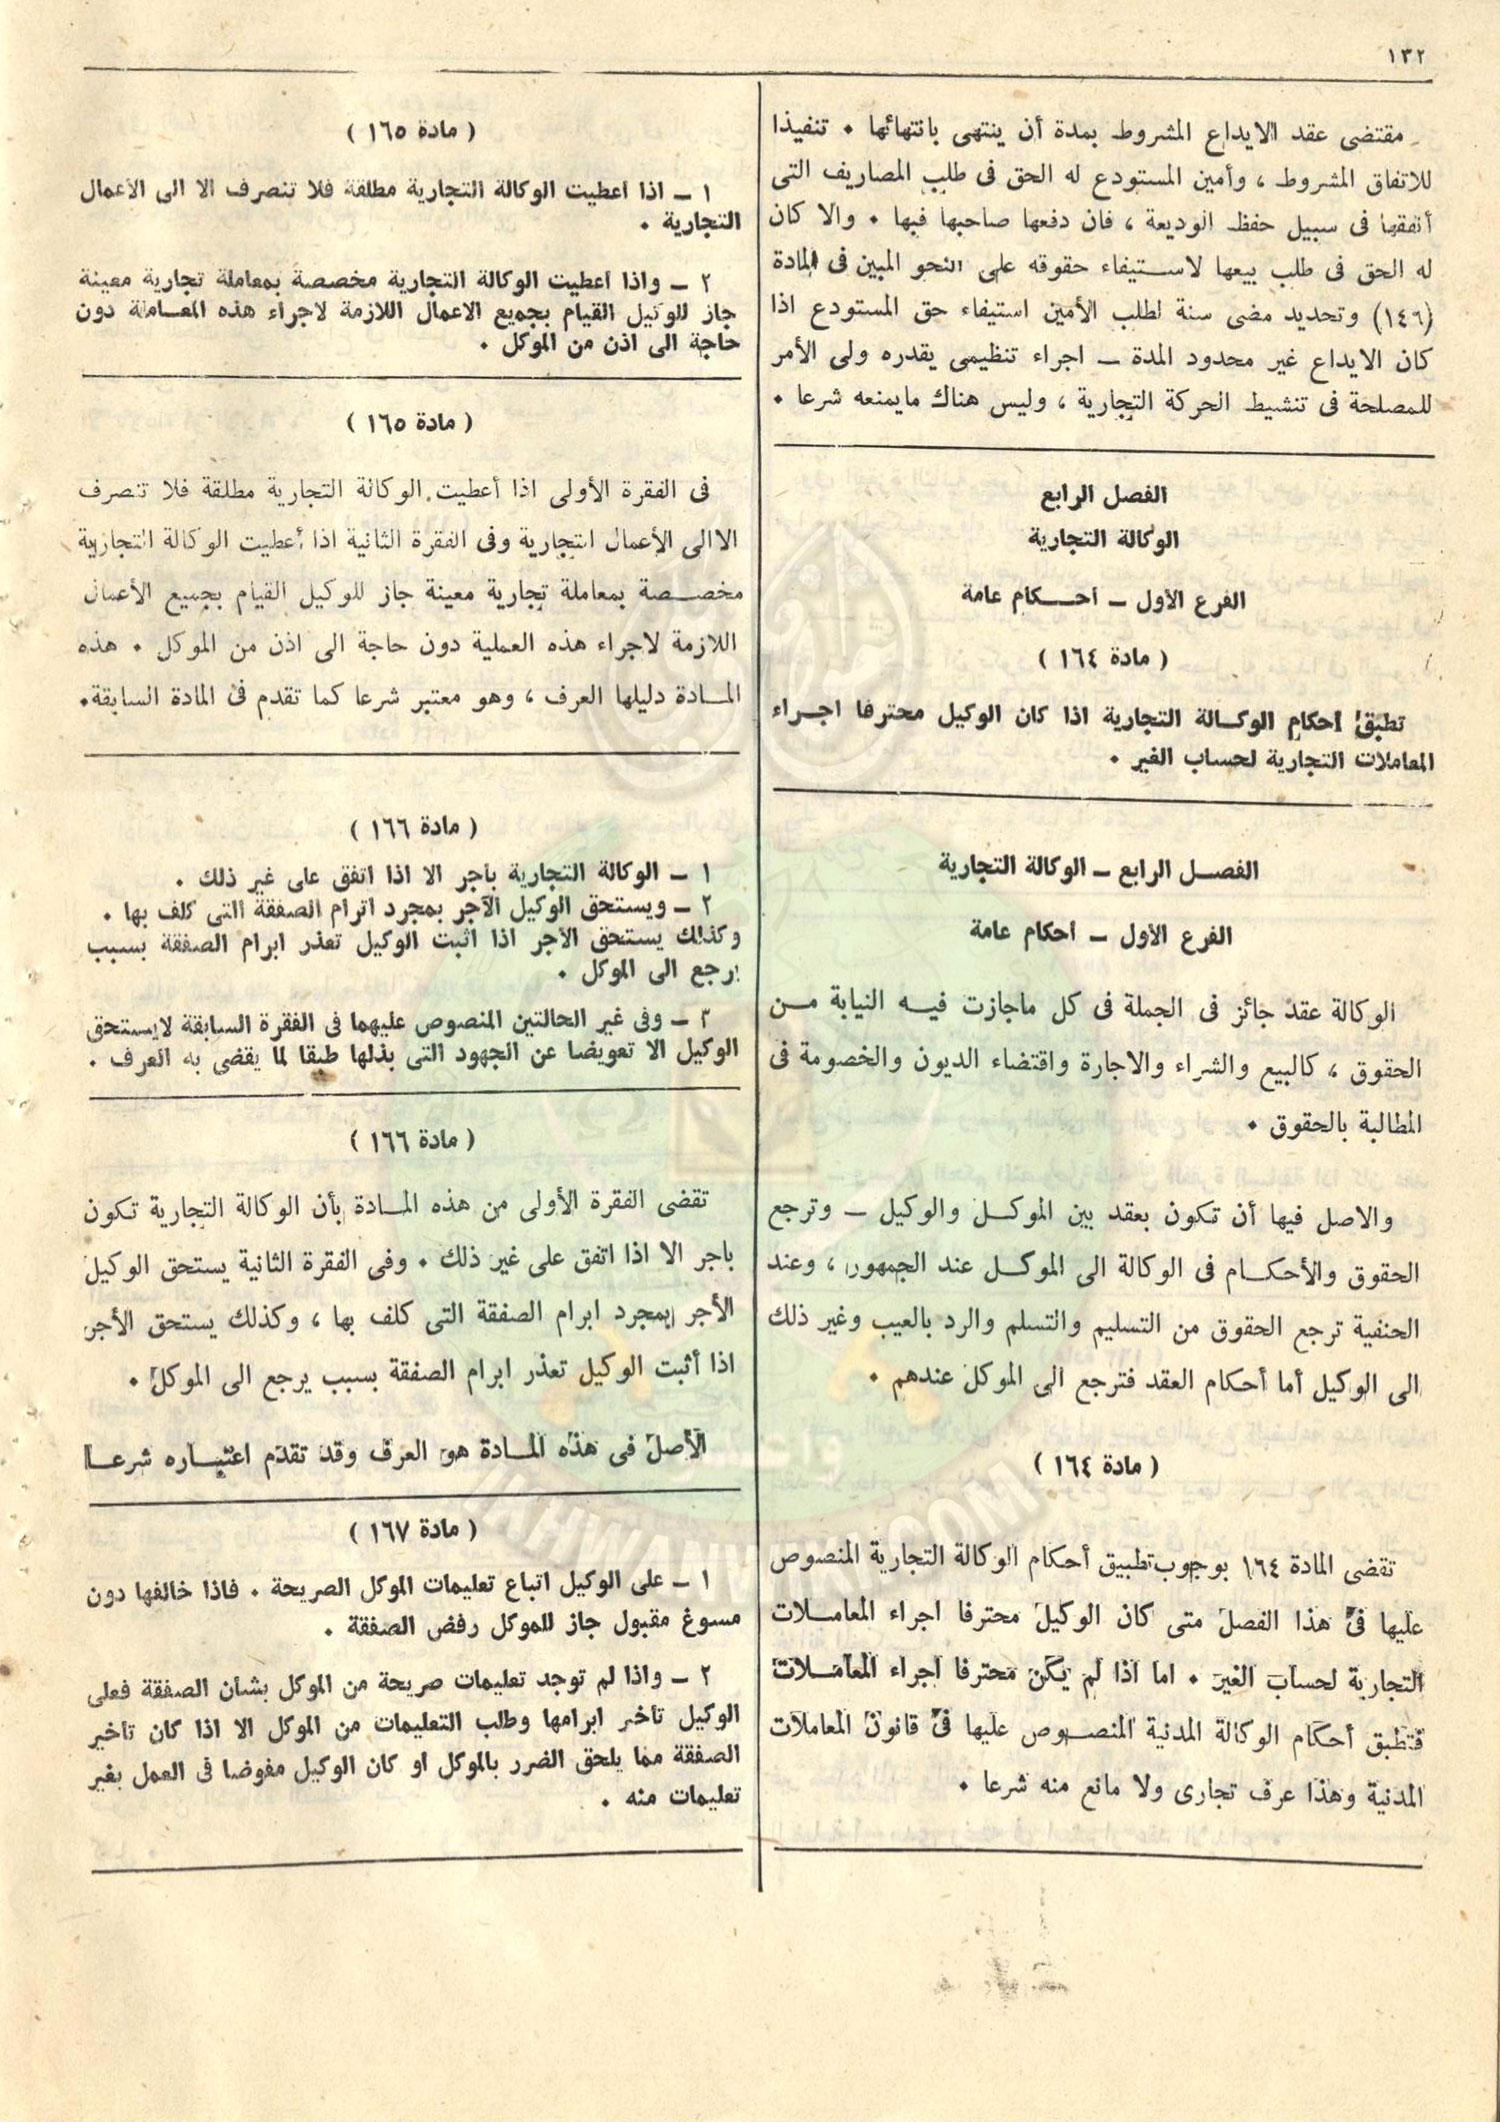 ١٣٢
مقتضى عقد الايداع المشروط بمدة أن ينتهى بانتهائها ٠ تنفيذا
للاتفاق المشروط ، وأمين المستودع له الحق فى طلب المصاريف التى
أنفقها فى سبيل حفظ الوديعة ، فان دفعها صاحبها فبها ٠ والا كان
له الحق فى طلب بيعها لاستيفاء حقوقه على النحو المبين فى المادة
(١٤٦) وتحديد مضى سنة لطلب الأمين استيفاء حق المستودع اذا
كان الايداع غير محدود المدة ــ اجراء تنظيمى يقدره ولى الأمر
للمصلحة فى تنشيط الحركة التجارية ، وليس هناك مايمنعه شرعا ٠
الفصل الرابع
الوكالة التجارية
الفرع الأول ــ أحكام عامة
( مادة ١٦٤ )
تطبق أحكام الوكالة التجارية اذا كان الوكيل محترفا اجراء
المعاملات التجارية لحساب الغير ٠
الفصل الرابع ــ الوكالة التجارية
الفرع الأول ــ أحكام عامة
الوكالة عقد جائز فى الجملة فى كل ماجازت فيه النيابة من
الحقوق ، كالبيع والشراء والاجارة واقتضاء الديون والخصومة فى
المطالبة بالحقوق ٠
والاصل فيها أن تكون بعقد بين الموكل والوكيل ــ وترجع
الحقوق والأحكام فى الوكالة الى الموكل عند الجمهور ، وعند
الحنفية ترجع الحقوق من التسليم والتسلم والرد بالعيب وغير ذلك
الى الوكيل أما أحكام العقد فترجع الى الموكل عندهم ٠
( مادة ١٦٤ )
تقضى المادة ١٦٤ بوجوب تطبيق أحكام الوكالة التجارية المنصوص
عليها فى هذا الفصل متى كان الوكيل محترفا اجراء المعاملات
التجارية لحساب الغير ٠ اما اذا لم يكن محترفا اجراء المعاملات
فتطبق أحكام الوكالة المدنية المنصوص عليها فى قانون المعاملات
المدنية وهذا عرف تجارى ولا مانع منه شرعا ٠
( مادة ١٦٥ )
١ ــ اذا أعطيت الوكالة التجارية مطلقة فلا تنصرف الا الى الأعمال
التجارية ٠
٢ ــ واذا أعطيت الوكالة التجارية مخصصة بمعاملة تجارية معينة
جاز للوكيل القيام بجميع الاعمال اللازمة لاجراء هذه المعاملة دون
حاجة الى اذن من الموكل ٠
( مادة ١٦٥ )
فى الفقرة الأولى اذا أعطيت الوكالة التجارية مطلقة فلا تنصرف
الا الى الأعمال التجارية وفى الفقرة الثانية اذا أعطيت الوكالة التجارية
مخصصة بمعاملة تجارية معينة جاز للوكيل القيام بجميع الأعمال
اللازمة لاجراء هذه العملية دون حاجة الى اذن من الموكل ٠ هذه
المادة دليلها العرف ، وهو معتبر شرعا كما تقدم فى المادة السابقة٠
( مادة ١٦٦ )
١ ــ الوكالة التجارية بأجر الا اذا اتفق على غير ذلك ٠
٢ ــ ويستحق الوكيل الأجر بمجرد اترام الصفقة التى كلف بها ٠
وكذلك يستحق الأجر اذا أثبت الوكيل تعذر ابرام الصفقة بسبب
يرجع الى الموكل ٠
٣ ــ وفى غير الحالتين المنصوص عليهما فى الفقرة السابقة لايستحق
الوكيل الا تعويضا عن الجهود التى بذلها طبقا لما يقضى به العرف ٠
( مادة ١٦٦ )
تقضى الفقرة الأولى من هذه المادة بأن الوكالة التجارية تكون
باجر الا اذا اتفق على غير ذلك ٠ وفى الفقرة الثانية يستحق الوكيل
الأجر بمجرد ابرام الصفقة التى كلف بها ، وكذلك يستحق الأجر
اذا أثبت الوكيل تعذر ابرام الصفقة بسبب يرجع الى الموكل ٠
الأصل فى هذه المادة هو العرف وقد تقدم اعتباره شرعا
( مادة ١٦٧ )
١ ــ على الوكيل اتباع تعليمات الموكل الصريحة ٠ فاذا خالفها دون
مسوغ مقبول جاز للموكل رفض الصفقة ٠
٢ ــ واذا لم توجد تعليمات صريحة من الموكل بشأن الصفقة فعلى
الوكيل تأخير ابرامها وطلب التعليمات من الموكل الا اذا كان تأخير
الصفقة مما يلحق الضرر بالموكل او كان الوكيل مفوضا فى العمل بغير
تعليمات منه ٠